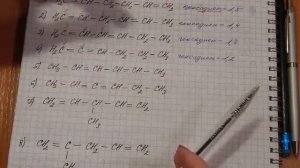 гексадиен - 1,5
2) H₂C = CH – CH₂ – CH = CH – CH₃ гексадиен - 1,4
3) H₂C = CH – CH = CH – CH₂ – CH₃ гексадиен - 1,3
4) H₂C = C = CH – CH₂ – CH₂ – CH₃ гексадиен - 1,2
5) CH₃ – CH = CH – CH = CH – CH₃
6) CH₃ – CH = C = CH – CH₂ – CH₃
7) CH₂ = CH – CH – CH = CH₂
CH₃
8) CH₂ = C – CH₂ – CH = CH₂